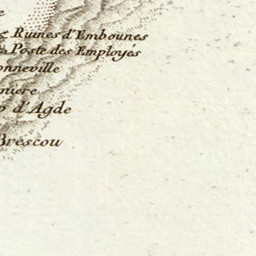 Ruines d'Embounes
Poste des Employés
onneville
niere
d'Agde
Brescou